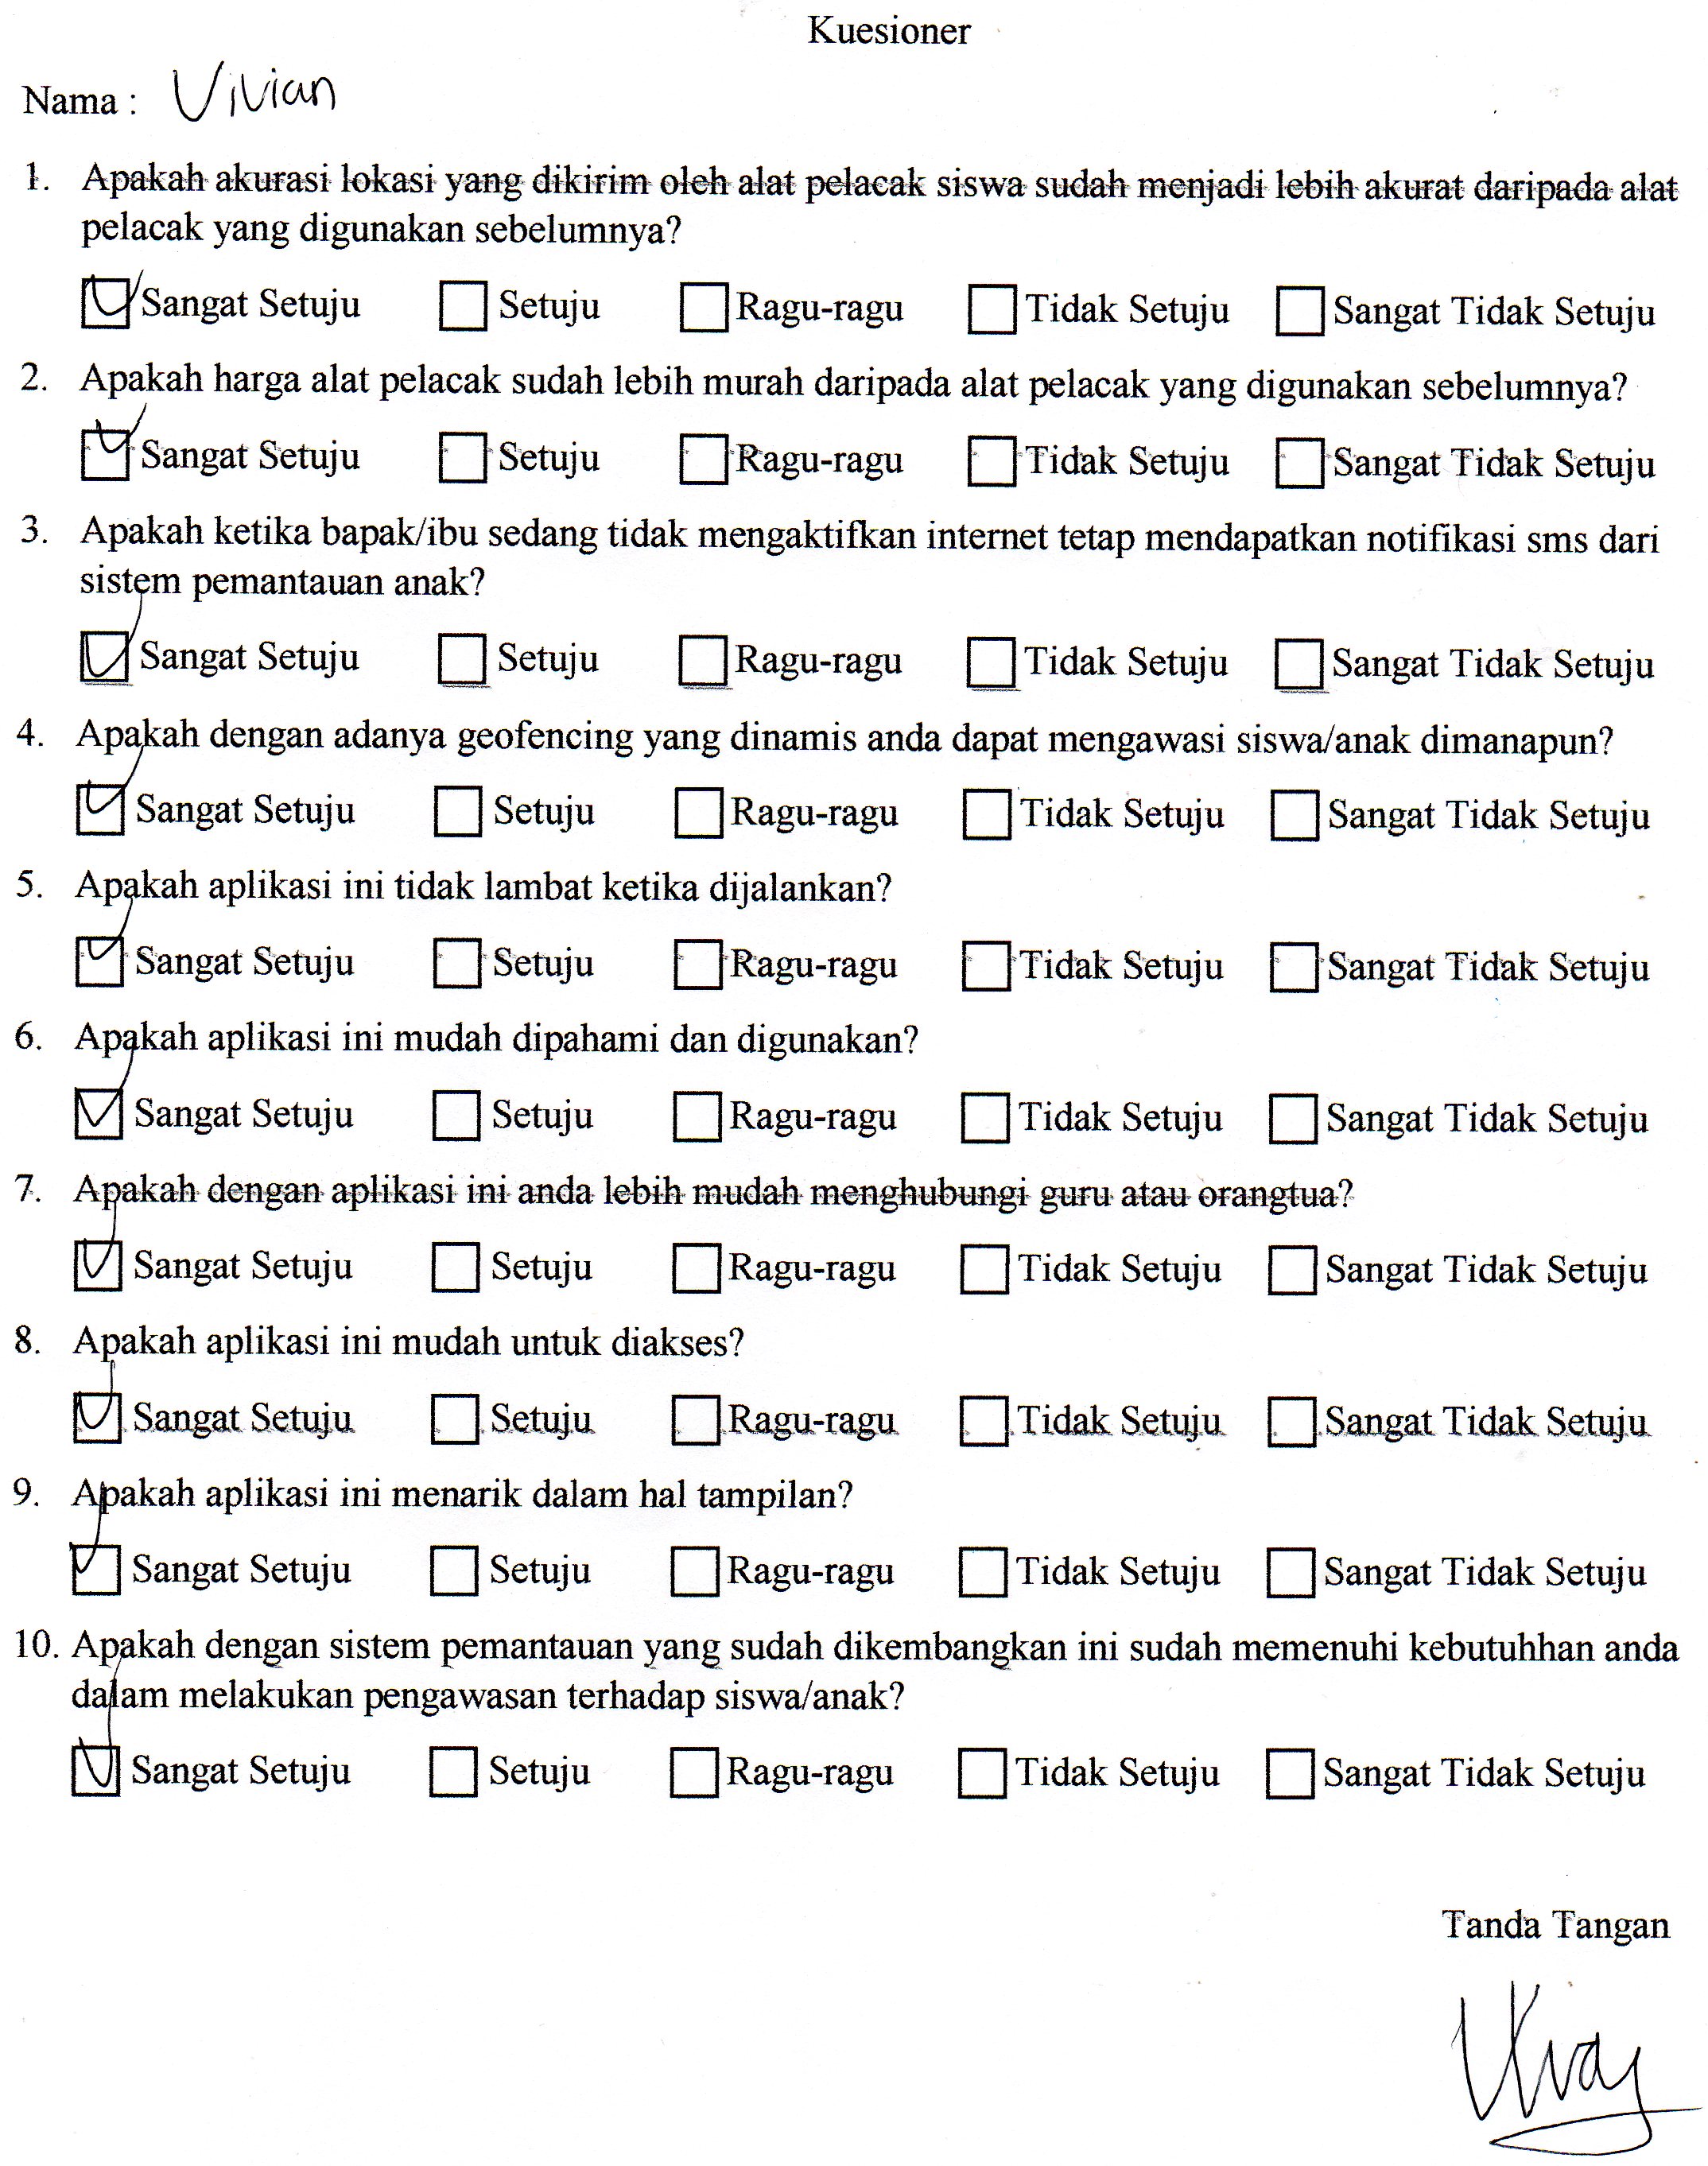 Kuesioner
Nama : Vivian
1. Apakah akurasi lokasi yang dikirim oleh alat pelacak siswa sudah menjadi lebih akurat daripada alat
pelacak yang digunakan sebelumnya?
Sangat Setuju Setuju Ragu-ragu Tidak Setuju Sangat Tidak Setuju
2. Apakah harga alat pelacak sudah lebih murah daripada alat pelacak yang digunakan sebelumnya?
Sangat Setuju Setuju Ragu-ragu Tidak Setuju Sangat Tidak Setuju
3. Apakah ketika bapak/ibu sedang tidak mengaktifkan internet tetap mendapatkan notifikasi sms dari
sistem pemantauan anak?
Sangat Setuju Setuju Ragu-ragu Tidak Setuju Sangat Tidak Setuju
4. Apakah dengan adanya geofencing yang dinamis anda dapat mengawasi siswa/anak dimanapun?
Sangat Setuju Setuju Ragu-ragu Tidak Setuju Sangat Tidak Setuju
5. Apakah aplikasi ini tidak lambat ketika dijalankan?
Sangat Setuju Setuju Ragu-ragu Tidak Setuju Sangat Tidak Setuju
6. Apakah aplikasi ini mudah dipahami dan digunakan?
Sangat Setuju Setuju Ragu-ragu Tidak Setuju Sangat Tidak Setuju
7. Apakah dengan aplikasi ini anda lebih mudah menghubungi guru atau orangtua?
Sangat Setuju Setuju Ragu-ragu Tidak Setuju Sangat Tidak Setuju
8. Apakah aplikasi ini mudah untuk diakses?
Sangat Setuju Setuju Ragu-ragu Tidak Setuju Sangat Tidak Setuju
9. Apakah aplikasi ini menarik dalam hal tampilan?
Sangat Setuju Setuju Ragu-ragu Tidak Setuju Sangat Tidak Setuju
10. Apakah dengan sistem pemantauan yang sudah dikembangkan ini sudah memenuhi kebutuhhan anda
dalam melakukan pengawasan terhadap siswa/anak?
Sangat Setuju Setuju Ragu-ragu Tidak Setuju Sangat Tidak Setuju
Tanda Tangan